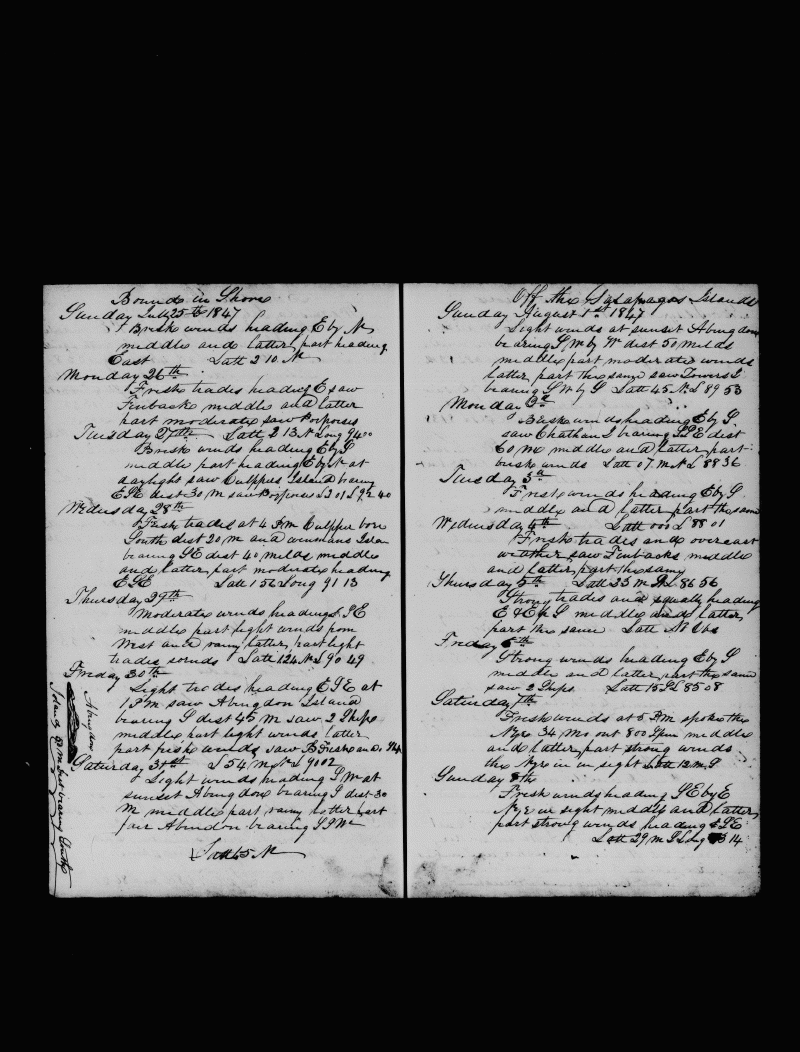 Bound in Shore
Sunday July 25th 1847
Brisk winds heading E by N
middle and latter part heading
East Latt 2 10 N
Monday 26th
Fresh trades heading E saw
Finbacks middle and latter
part moderate saw Porpoises
Tuesday 27th Latt 2 13 N Long 94 00
Brisk winds heading E by S
middle part heading E by N at
daylight saw Culppers Island bearing
ESE dist 30 M saw Porpoises L 2 01 L 92 40
Wedusday 28th
Fresh trades at 4 P m Culpper bore
South dist 20 m and winmans Islan
bearing SE dist 40 miles middle
and latter part moderate heading
ESE Latt 1 56 Long 91 13
Thursday 29th
Moderate winds heading SE
middle part light winds from
West and rainy latter part light
trades Latt 1 24 N L 90 49
Friday 30th
Light trades heading ESE at
1 P m saw Abingdon Island
bearing S dist 45 m saw 2 Ships
middle part light winds latter
part fresh winds saw B Fish and
Saturday 31st L 54 m N L 90 02
Light winds heading S W at
sunset Abingdon bearing S dist 30
m middle part rainy latter part
fair Abindon bearing SSW
Latt 45 N
Abingdon
Island m dist bearing South
Off the Galapagos Islands
Sunday August 1st 1847
Light winds at sunset Abingdon
bearing S W by W dist 50 miles
middle part moderate winds
latter part the same saw Towers I
bearing S W by S Latt 45 N L 89 53
Monday 2d
Brisk winds heading E by S
saw Chatham I bearing SSE dist
60 m middle and latter part
brisk winds Latt 07 m N L 88 36
Tuesday 3d
Fresh winds heading E by S
middle and latter part the same
Wedusday 4th Latt 000 L 88 01
Fresh trades and overcast
weather saw Finbacks middle
and latter part the samy
Thursday 5th Latt 33 m L 86 56
Strong trades and squally heading
E & E by S middle and latter
part the same Latt No Obs
Friday 6th
Strong winds heading E by S
middle and latter part the same
saw 2 Ships Latt 15 S L 85 08
Saturday 7th
Fresh winds at 5 P m spoke the
Nye 34 Mos out 800 Spm middle
and latter part strong winds
the Nye in sight Latt 12 m S
Sunday 8th
Fresh winds heading SE by E
Nye in sight middle and latter
part strong winds heading ESE
Latt 29 m S Long 14